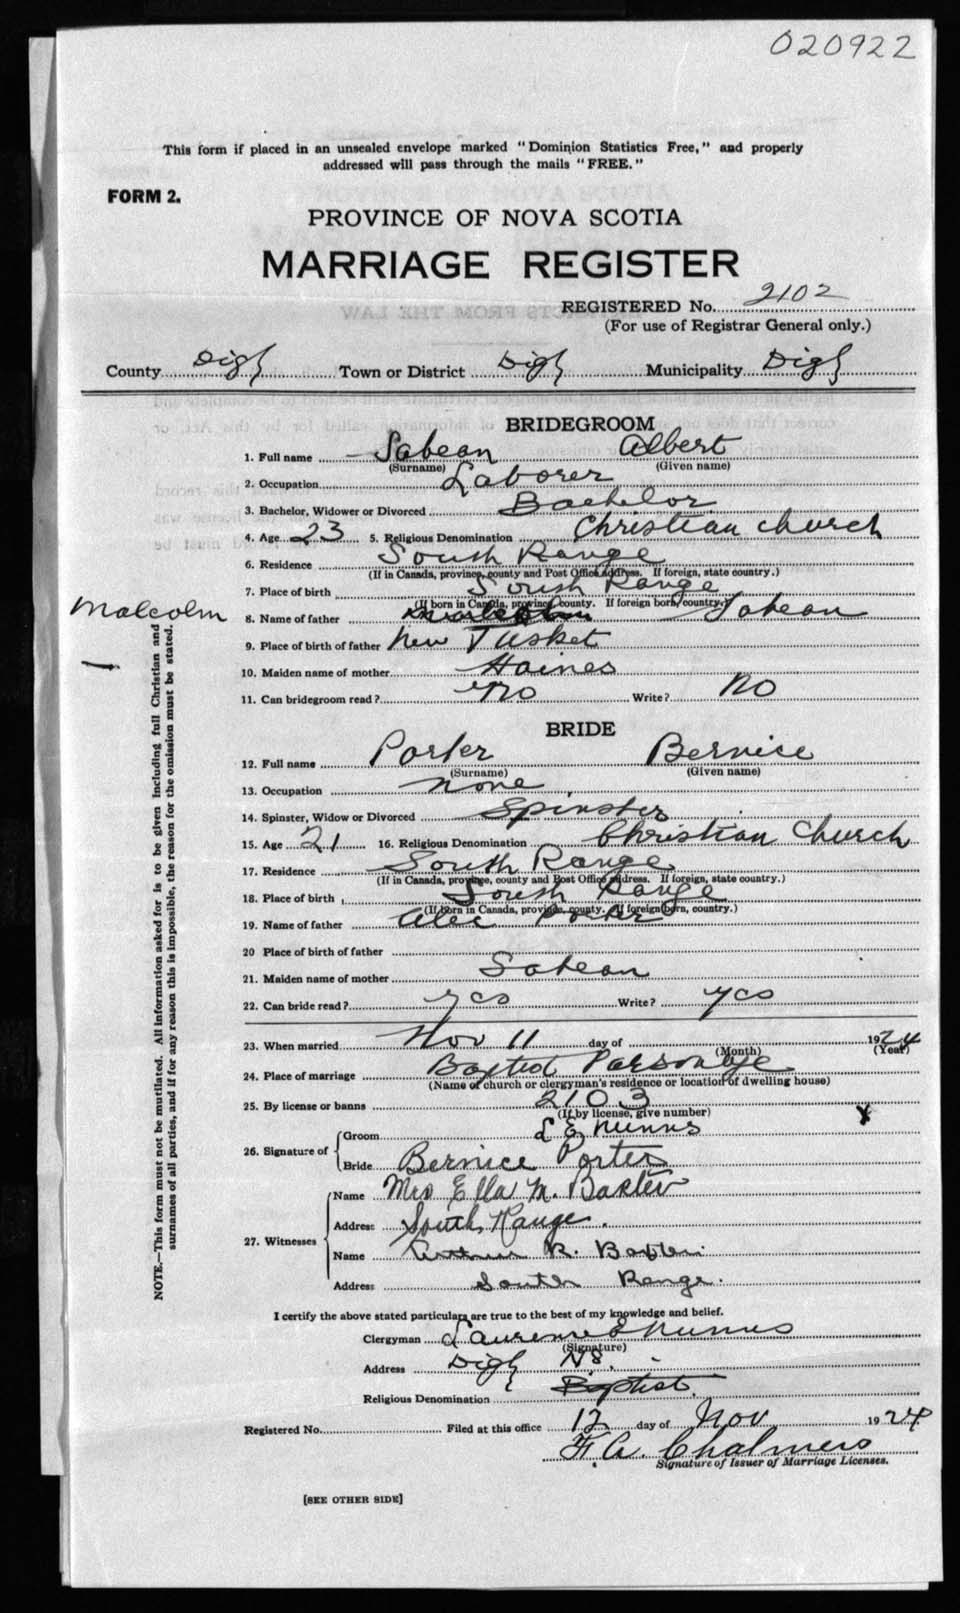 020922
This form if placed in an unsealed envelope marked "Dominion Statistics Free," and properly
addressed will pass through the mails "FREE."
FORM 2.
PROVINCE OF NOVA SCOTIA
MARRIAGE REGISTER
REGISTERED No. 2102
(For use of Registrar General only.)
County Digby Town or District Digby Municipality Digby
BRIDEGROOM
1. Full name Sabean Albert
(Surname) (Given name)
2. Occupation Laborer
3. Bachelor, Widower or Divorced Bachelor
4. Age 23 5. Religious Denomination Christian Church
6. Residence South Range
(If in Canada, province, county and Post Office address. If foreign, state country.)
7. Place of birth South Range
(If born in Canada, province, county. If foreign born, country.)
Malcolm
8. Name of father Sabean
9. Place of birth of father New Tusket
10. Maiden name of mother Haines
11. Can bridegroom read? No Write? No
BRIDE
12. Full name Porter Bernice
(Surname) (Given name)
13. Occupation none
14. Spinster, Widow or Divorced Spinster
15. Age 21 16. Religious Denomination Christian Church
17. Residence South Range
(If in Canada, province, county and Post Office address. If foreign, state country.)
18. Place of birth South Range
(If born in Canada, province, county. If foreign born, country.)
19. Name of father Alec Porter
20 Place of birth of father
21. Maiden name of mother Sabean
22. Can bride read? yes Write? yes
23. When married Nov 11 day of 1924
(Month) (Year)
24. Place of marriage Baptist Parsonage
(Name of church or clergyman's residence or location of dwelling house)
25. By license or banns 2103
(If by license, give number)
26. Signature of Groom L E Nunns
X
Bride Bernice Porter
27. Witnesses Name Mrs Ella M. Baxter
Address South Range.
Name Arthur R. Baxter
Address South Range.
I certify the above stated particulars are true to the best of my knowledge and belief.
Clergyman Laurence E Nunns
(Signature)
Address Digby NS.
Religious Denomination Baptist.
Registered No. Filed at this office 12 day of Nov 1924
F. A. Chalmers
Signature of Issuer of Marriage Licenses.
[SEE OTHER SIDE]
NOTE.—This form must not be mutilated. All information asked for is to be given including full Christian and
surnames of all parties, and if for any reason this is impossible, the reason for the omission must be stated.